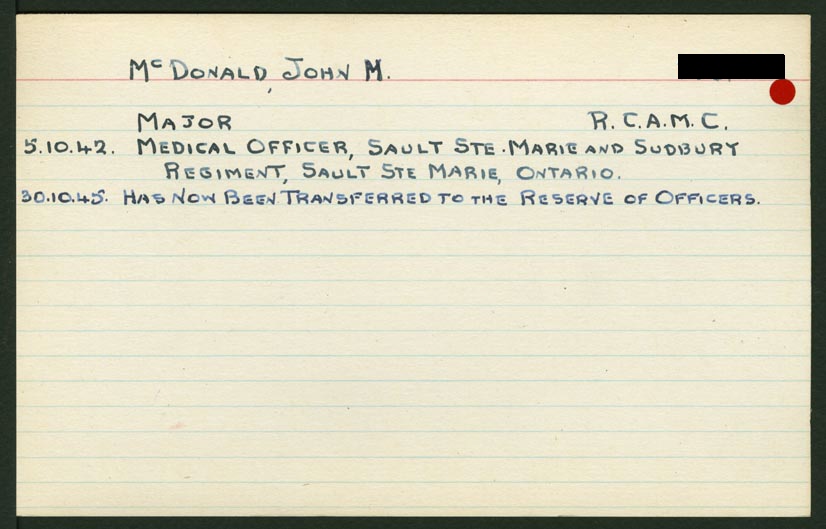 McDonald, John M.
Major R.C.A.M.C.
5.10.42. Medical Officer, Sault Ste. Marie and Sudbury
Regiment, Sault Ste Marie, Ontario.
30.10.45. Has Now Been Transferred to the Reserve of Officers.